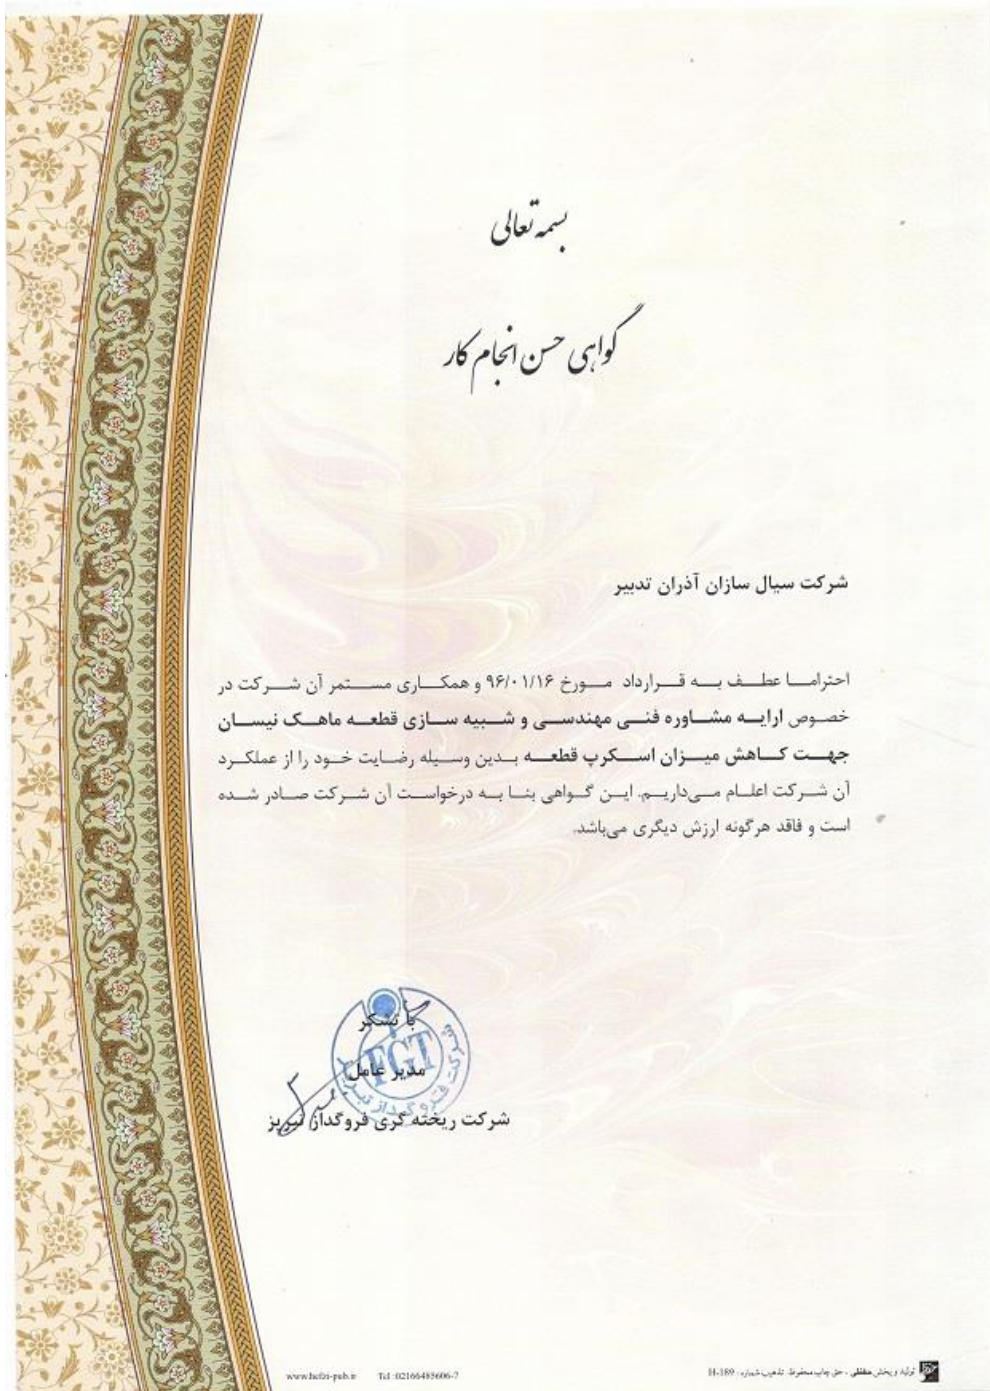 بسمه تعالی
گواهی حسن انجام کار
شرکت سیال سازان آذران تدبیر
احتراما عطف به قرارداد مورخ ۹۶/۰۱/۱۶ و همکاری مستمر آن شرکت در
خصوص ارایه مشاوره فنی مهندسی و شبیه سازی قطعه ماهک نیسان
جهت کاهش میزان اسکرپ قطعه بدین وسیله رضایت خود را از عملکرد
آن شرکت اعلام می‌داریم. این گواهی بنا به درخواست آن شرکت صادر شده
است و فاقد هرگونه ارزش دیگری می‌باشد.
با تشکر
مدیر عامل
شرکت ریخته گری فروگداز تبریز
FGT
شرکت فروگداز تبریز
تولید و پخش حفظی - حق چاپ محفوظ. تذهیب شماره: H-189
Tel :02166485606-7
www.hefzi-pub.ir